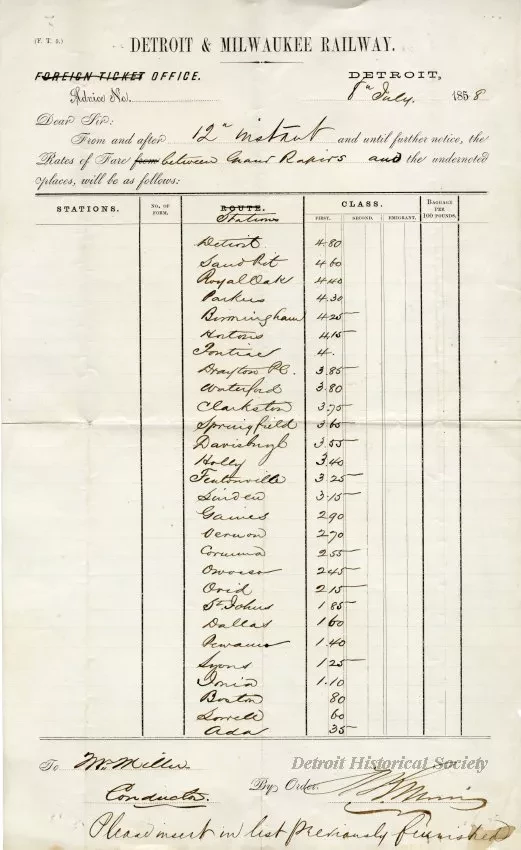 (F. T. 3.)
DETROIT & MILWAUKEE RAILWAY.
FOREIGN TICKET OFFICE.
DETROIT,
Advice No.
8th July. 1858
Dear Sir:
From and after 12th instant and until further notice, the
Rates of Fare from between Grand Rapids and the undernoted
places, will be as follows:
STATIONS. NO. OF FORM. ROUTE. Stations CLASS. BAGGAGE PER 100 POUNDS.
FIRST. SECOND. EMIGRANT.
Detroit 4.80
Sand Pit 4 60
Royal Oak 4 40
Parkers 4.30
Birmingham 4 25
Hortons 4.15
Pontiac 4.
Drayton Pl. 3.85
Waterford 3.80
Clarkston 3.75
Springfield 3 65
Davisburgh 3.55
Holly 3.40
Fentonville 3 25
Linden 3.15
Gaines 2.90
Vernon 2.70
Corunna 2 55
Owosso 2 45
Ovid 2 15
St Johns 1 85
Dallas 1 60
Pewamo 1.40
Lyons 1 25
Ionia 1.10
Boston 80
Lowell 60
Ada 35
To Mr. Miller
Conductor.
By Order.
Detroit Historical Society
Please insert in list previously furnished